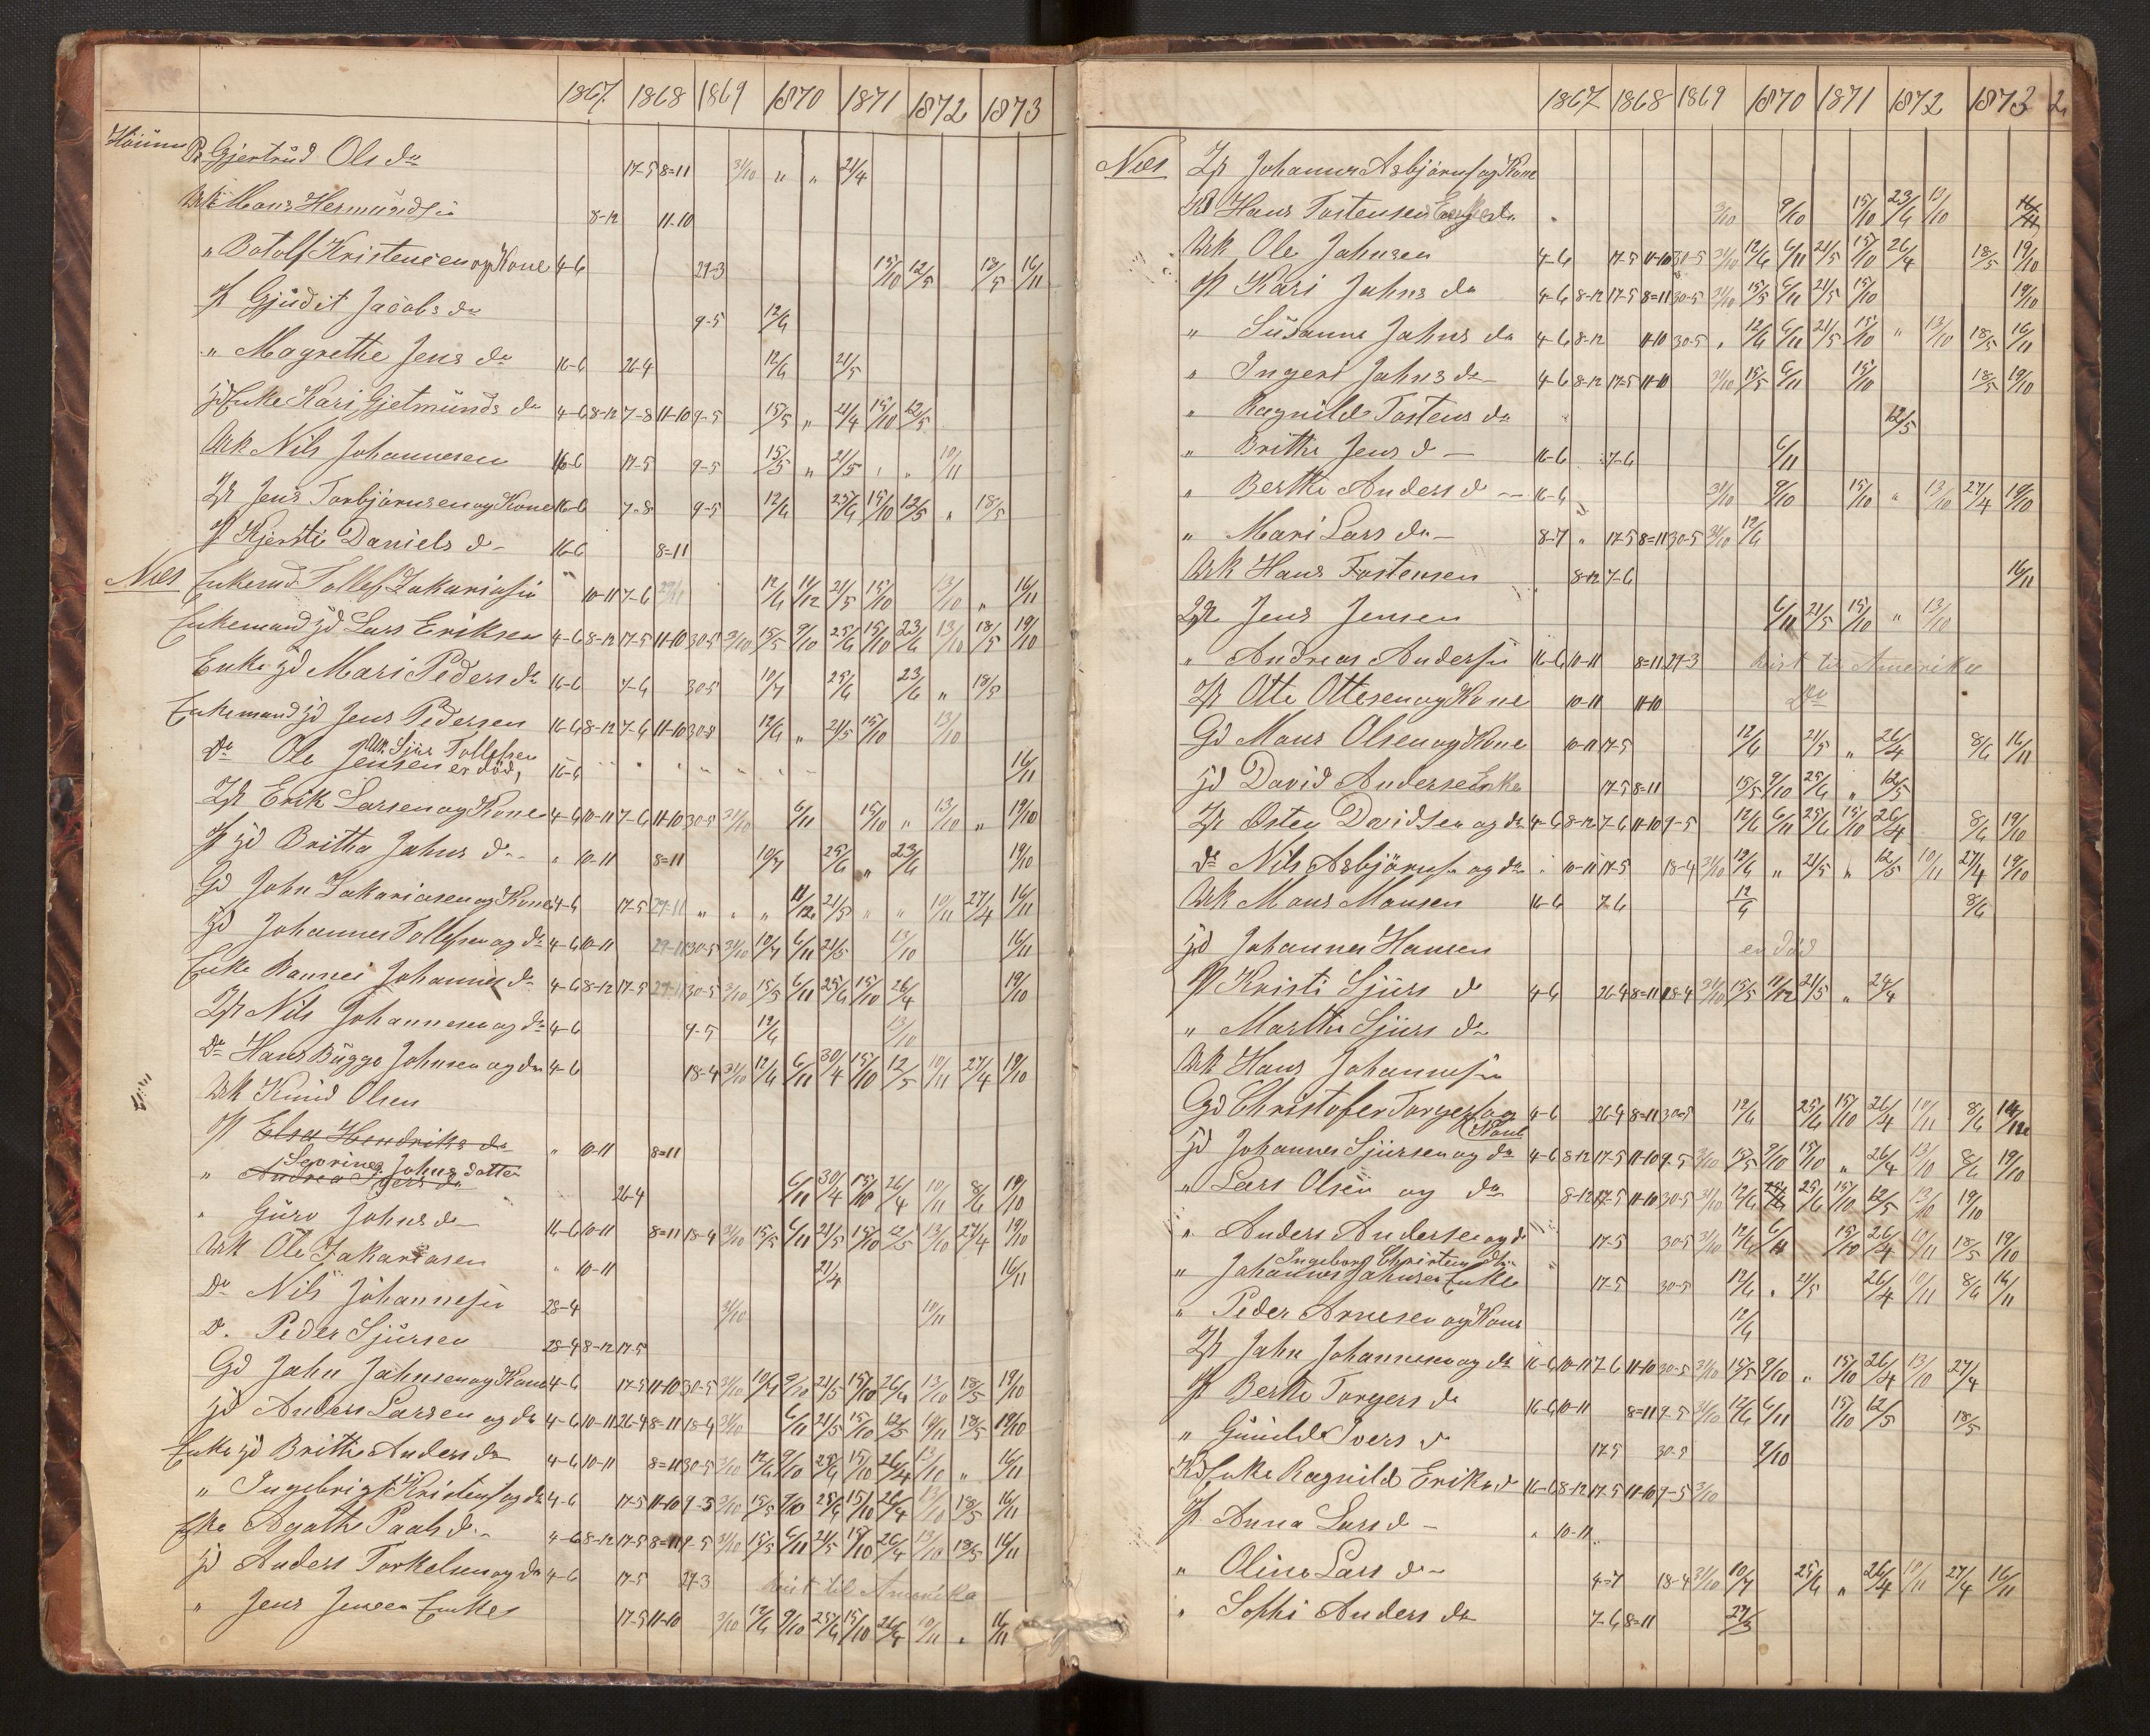 1867. 1868 1869 1870 1871 1872 1873
Pr Gjertrud Ols da 17-5 8=11 31/10 " " 21/4
Mons Hermundsen 8-12 11-10
" Botolf Kristensen og Kone 4-6 27-3 15/10 12/5 18/5 16/11
Gjudit Jacobs da 9-5 12/6
" Magrethe Jens da 16-6 26-4 12/6 21/5
jd Enke Kari Gjetmunds da 4-6 8-12 7-8 11-10 9-5 15/5 " 21/4 15/10 12/5
Urk Nils Johannesen 16-6 17-5 9-5 15/5 " 21/5 " " 10/11
Jens Torbjørnsen og Kone 16-6 7-8 9-5 12/6 25/6 15/10 12/5 " 18/5
Kjersti Daniels d- 16-6 8=11
Næs Enkemd Tollef Zakariasen " 10-11 7-6 29/11 12/6 11/12 21/5 15/10 13/10 " 16/11
Enkemand jd Lars Eriksen 4-6 8-12 17-5 11-10 30-5 31/10 15/5 9/10 25/6 15/10 23/6 13/10 18/5 19/10
Enke jd Mari Peders da 16-6 7-6 30-5 10/7 25/6 23/6 " 18/5
Enkemand jd Jens Pedersen 16-6 8-12 7-6 11-10 30-5 12/6 " 21/5 15/10 13/10
Urk Sjur Tollefsen
Do Ole Jensen er död, 16-6 16/11
Erik Larsen og Kone 4-6 10-11 7-6 11-10 30-5 31/10 6/11 15/10 " 13/10 " 19/10
jd Britha Jahns d- " 10-11 8=11 10/7 25/6 " 23/6 19/10
Gd John Zakariasen og Kone 4-6 17-5 29-11 " " " 11/12 21/5 " " 10/11 27/4 16/11
jd Johannes Tollefsen og do 4-6 10-11 29-11 30-5 31/10 10/7 6/11 21/5 13/10 16/11
Enke Rannei Johannes da 4-6 8-12 17-5 29-11 30-5 31/10 15/5 6/11 25/6 15/10 26/4 19/10
Nils Johannesen og do 4-6 9-5 12/6 13/10
Do Hans Bugge Johnsen og do 4-6 18-4 31/10 12/6 6/11 30/4 15/10 12/5 10/11 27/4 19/10
Urk Knud Olsen
Elsa Hendriks da " 10-11 8=11
Severine Johns datter
" Andrea Ivers da 26-4 6/11 30/4 15/10 26/4 10/11 8/6 19/10
" Guro Johns d- 16-6 10-11 8=11 18-4 31/10 15/5 6/11 21/5 15/10 12/5 13/10 27/4 19/10
Urk Ole Zakariasen " 10-11 21/4 16/11
Do Nils Johannesen 28-4 31/10 10/11
D. Peder Sjursen 28-4 8-12 17-5
Gd Jahn Jahnsen og Kone 4-6 17-5 11-10 30-5 31/10 10/7 9/10 21/5 15/10 26/4 13/10 18/5 19/10
jd Anders Larsen og do 4-6 10-11 26-4 8=11 18-4 31/10 6/11 21/5 15/10 12/5 10/11 18/5 19/10
Enke jd Brithe Anders da 4-6 10-11 8=11 30-5 31/10 12/6 9/10 25/6 15/10 26/4 13/10 " 16/11
" Ingebrigt Kristens og do 4-6 17-5 11-10 9-5 31/10 15/5 9/10 25/6 15/10 26/4 13/10 18/5 16/11
Eke Agathe Pauls d- 4-6 8-12 17-5 8=11 9-5 31/10 15/5 6/11 21/5 15/10 26/4 13/10 18/5 16/11
jd Anders Torkelsen og do 4-6 17-5 27-3 reist til Amerika
" Jens Jensen Enke 17-5 11-10 31/10 12/6 9/10 25/6 15/10 26/4 10/11 " 16/11
1867 1868 1869 1870 1871 1872 1873 2
Næs Johannes Asbjørns og Kone
Hans Tostensen Enke " 31/10 9/10 15/10 23/6 13/10 16/11
Urk Ole Jahnsen 4-6 17-5 11-10 30-5 31/10 12/6 6/11 21/5 15/10 26/4 18/5 19/10
Kari Jahns da 4-6 8-12 17-5 8=11 30-5 31/10 15/5 6/11 21/5 15/10 19/10
" Susanna Jahns da 4-6 8-12 11-10 30-5 " 12/6 6/11 21/5 15/10 " 13/10 18/5 16/11
" Ingeri Jahns da 4-6 8-12 17-5 11-10 31/10 15/5 6/11 15/10 18/5 19/10
" Ragnild Tostens da 12/5
" Brithe Jens d- 16-6 7-6 6/11
" Berthe Anders d- 16-6 31/10 9/10 15/10 " 13/10 27/4 19/10
" Mari Lars da 8-7 " 17-5 8=11 30-5 31/10 12/6
Urk Hans Tostensen 8-12 7-6 16/11
Jens Jensen 6/11 21/5 15/10 " 13/10
" Andreas Andersen 16-6 10-11 8=11 27-3 reist til Amerika
Otte Ottesen og Kone 10-11 11-10 Do
Gd Mons Olsen og Kone 10-11 17-5 12/6 21/5 " 26/4 8/6 16/11
jd David Andersen Enke 17-5 8=11 15/5 9/10 25/6 " 12/5
Østen Davidsen og do 4-6 8-12 7-6 11-10 9-5 12/6 6/11 25/6 15/10 26/4 8/6 19/10
do Nils Asbjørns og do " 10-11 17-5 18-4 31/10 12/6 " 21/5 " 12/5 10/11 27/4 19/10
Urk Mons Monsen 16-6 7-6 12/6 8/6
jd Johannes Hansen er död
Kristi Sjurs d 4-6 26-4 8=11 18-4 31/10 15/5 11/12 21/5 " 24/4
" Marthe Sjurs da
Urk Hans Johannesen
Gd Christofer Torgers og Kone 4-6 26-4 8=11 30=5 12/6 25/6 15/10 26/4 10/11 8/6 14/12
jd Johannes Sjursen og do 4-6 8-12 17-5 11-10 9-5 31/10 15/5 9/10 15/10 " 26/4 13/10 8/6 19/10
" Lars Olsen og do 8-12 17-5 11-10 30-5 31/10 12/6 25/6 15/10 12/5 13/10 19/10
" Anders Andersen og d 17-5 30-5 31/10 12/6 6/11 15/10 26/4 10/11 18/5 19/10
Ingeborg Christens dtr
" Johannes Jahnsen Enke 17-5 30-5 12/6 " 21/5 26/4 10/11 8/6 16/11
" Peder Arnesen og Kone 12/6
Jahn Johannesen og do 16-6 10-11 7-6 11-10 30-5 31/10 15/5 9/10 " 15/10 26/4 13/10 27/4
Berthe Torgers da 16-6 10-11 8=11 9-5 31/10 12/6 6/11 15/10 12/5 18/5
" Gunild Ivers d 17-5 30-5 9/10
Enke Ragnild Eriks d 16-6 8-12 17-5 11-10 9-5 31/10
Anna Lars d- " 10-11
" Oline Lars d- 4=7 18-4 31/10 10/7 25/6 " 26/4 10/11 27/4 16/11
" Sophi Anders da 7-6 8=11 27/3